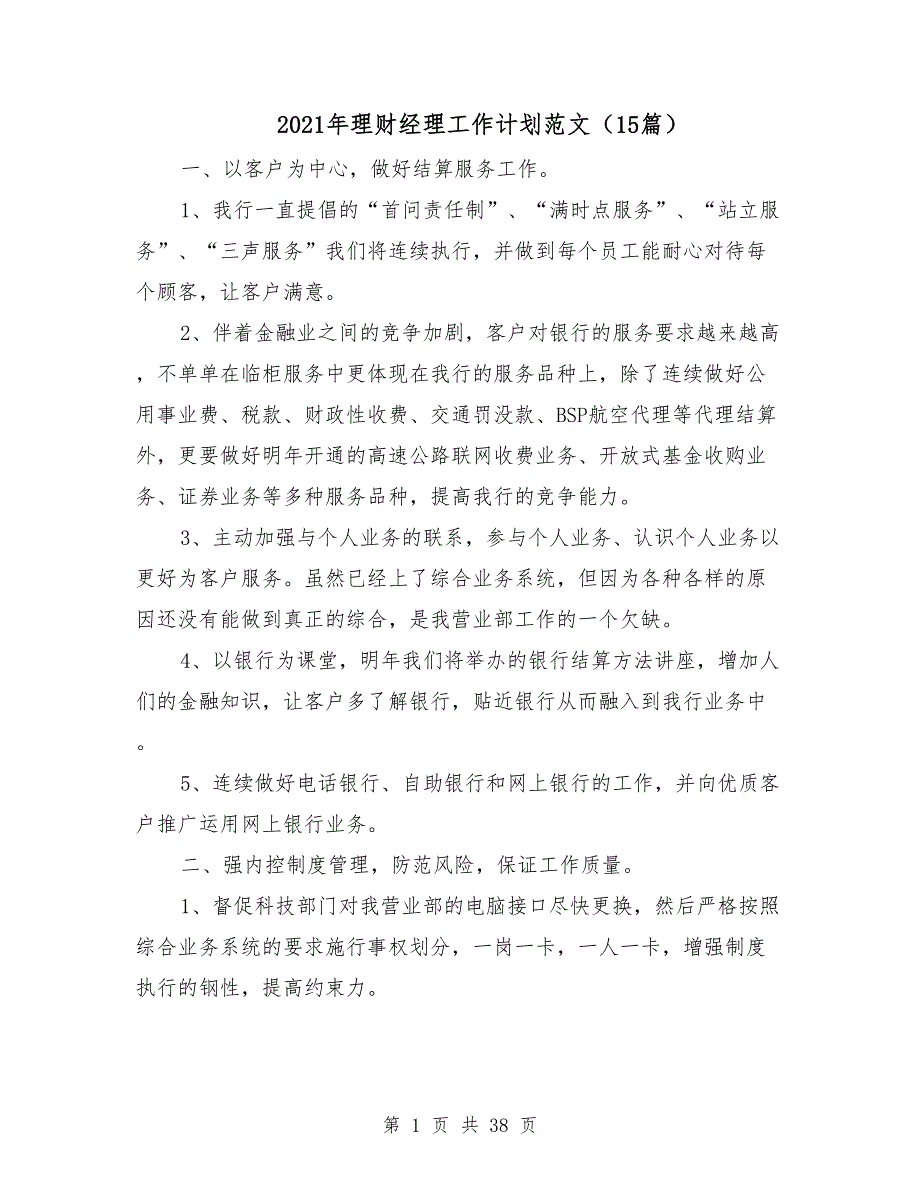 2021年理财经理工作计划范文（15篇）
一、以客户为中心，做好结算服务工作。
1、我行一直提倡的“首问责任制”、“满时点服务”、“站立服
务”、“三声服务”我们将连续执行，并做到每个员工能耐心对待每
个顾客，让客户满意。
2、伴着金融业之间的竞争加剧，客户对银行的服务要求越来越高
，不单单在临柜服务中更体现在我行的服务品种上，除了连续做好公
用事业费、税款、财政性收费、交通罚没款、BSP航空代理等代理结算
外，更要做好明年开通的高速公路联网收费业务、开放式基金收购业
务、证券业务等多种服务品种，提高我行的竞争能力。
3、主动加强与个人业务的联系，参与个人业务、认识个人业务以
更好为客户服务。虽然已经上了综合业务系统，但因为各种各样的原
因还没有能做到真正的综合，是我营业部工作的一个欠缺。
4、以银行为课堂，明年我们将举办的银行结算方法讲座，增加人
们的金融知识，让客户多了解银行，贴近银行从而融入到我行业务中
。
5、连续做好电话银行、自助银行和网上银行的工作，并向优质客
户推广运用网上银行业务。
二、强内控制度管理，防范风险，保证工作质量。
1、督促科技部门对我营业部的电脑接口尽快更换，然后严格按照
综合业务系统的要求施行事权划分，一岗一卡，一人一卡，增强制度
执行的钢性，提高约束力。
第 1 页 共 38 页